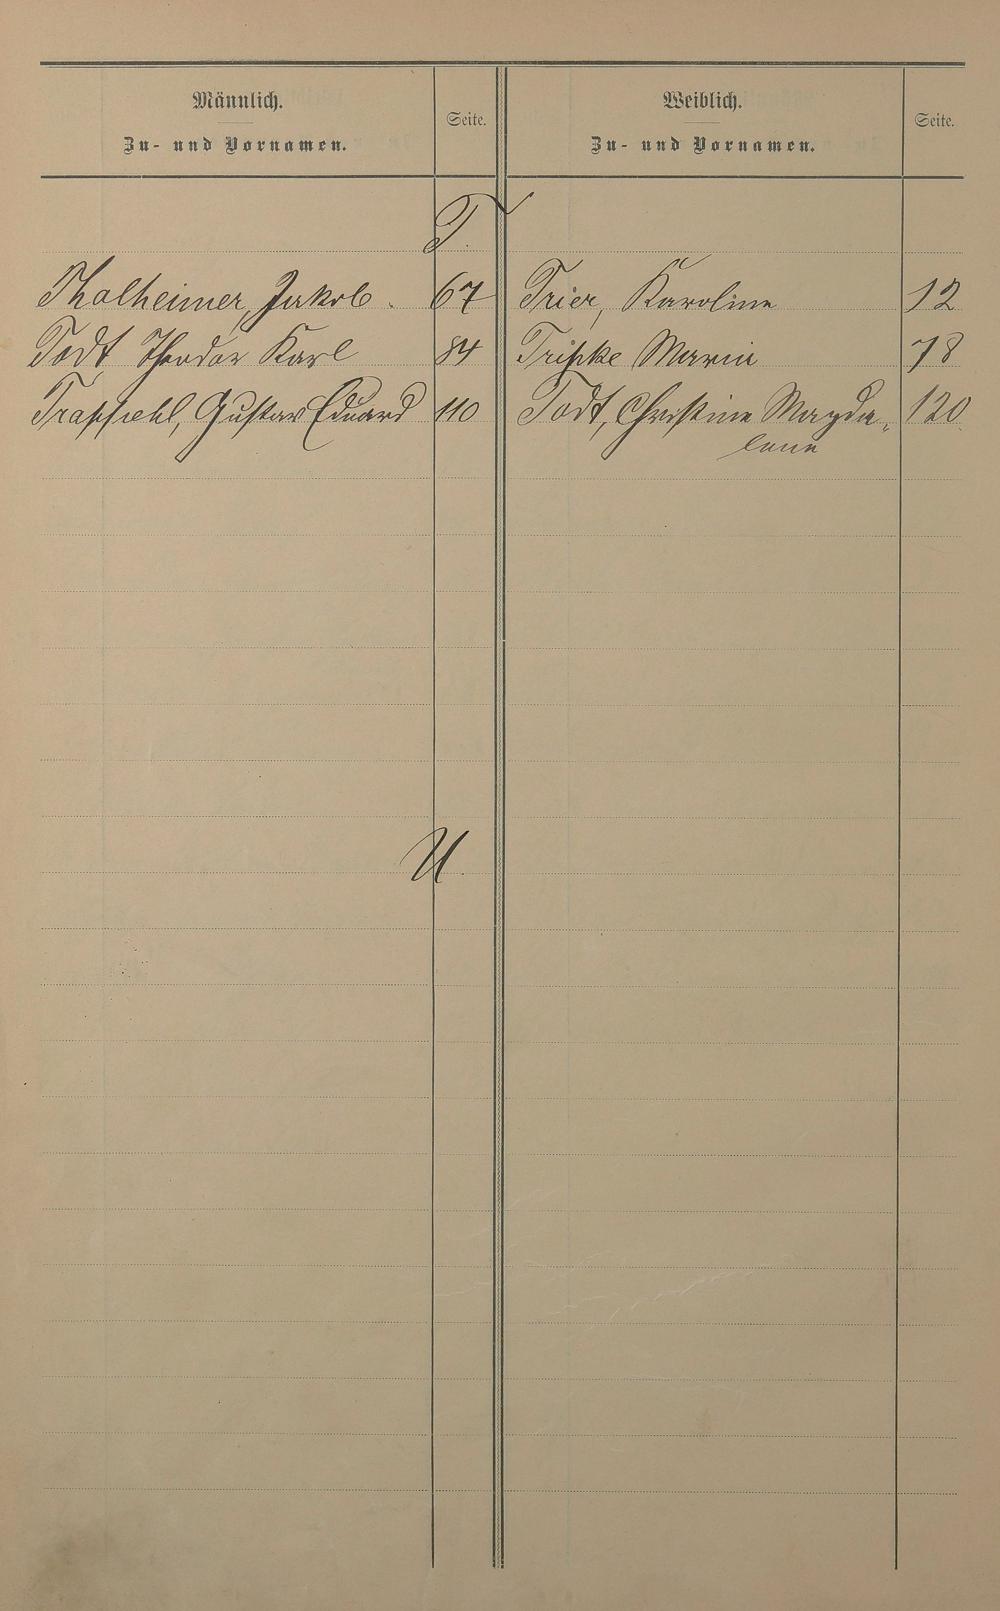 Männlich.
Zu- und Vornamen.
Seite.
Weiblich.
Zu- und Vornamen.
Seite.
T.
Thalheimer, Jakob. 67 Trier, Karoline 12
Todt Theodor Karl 84 Tripke Maria 78
Gustav Eduard 110 Todt, Christine Magda- 120
lena
U.